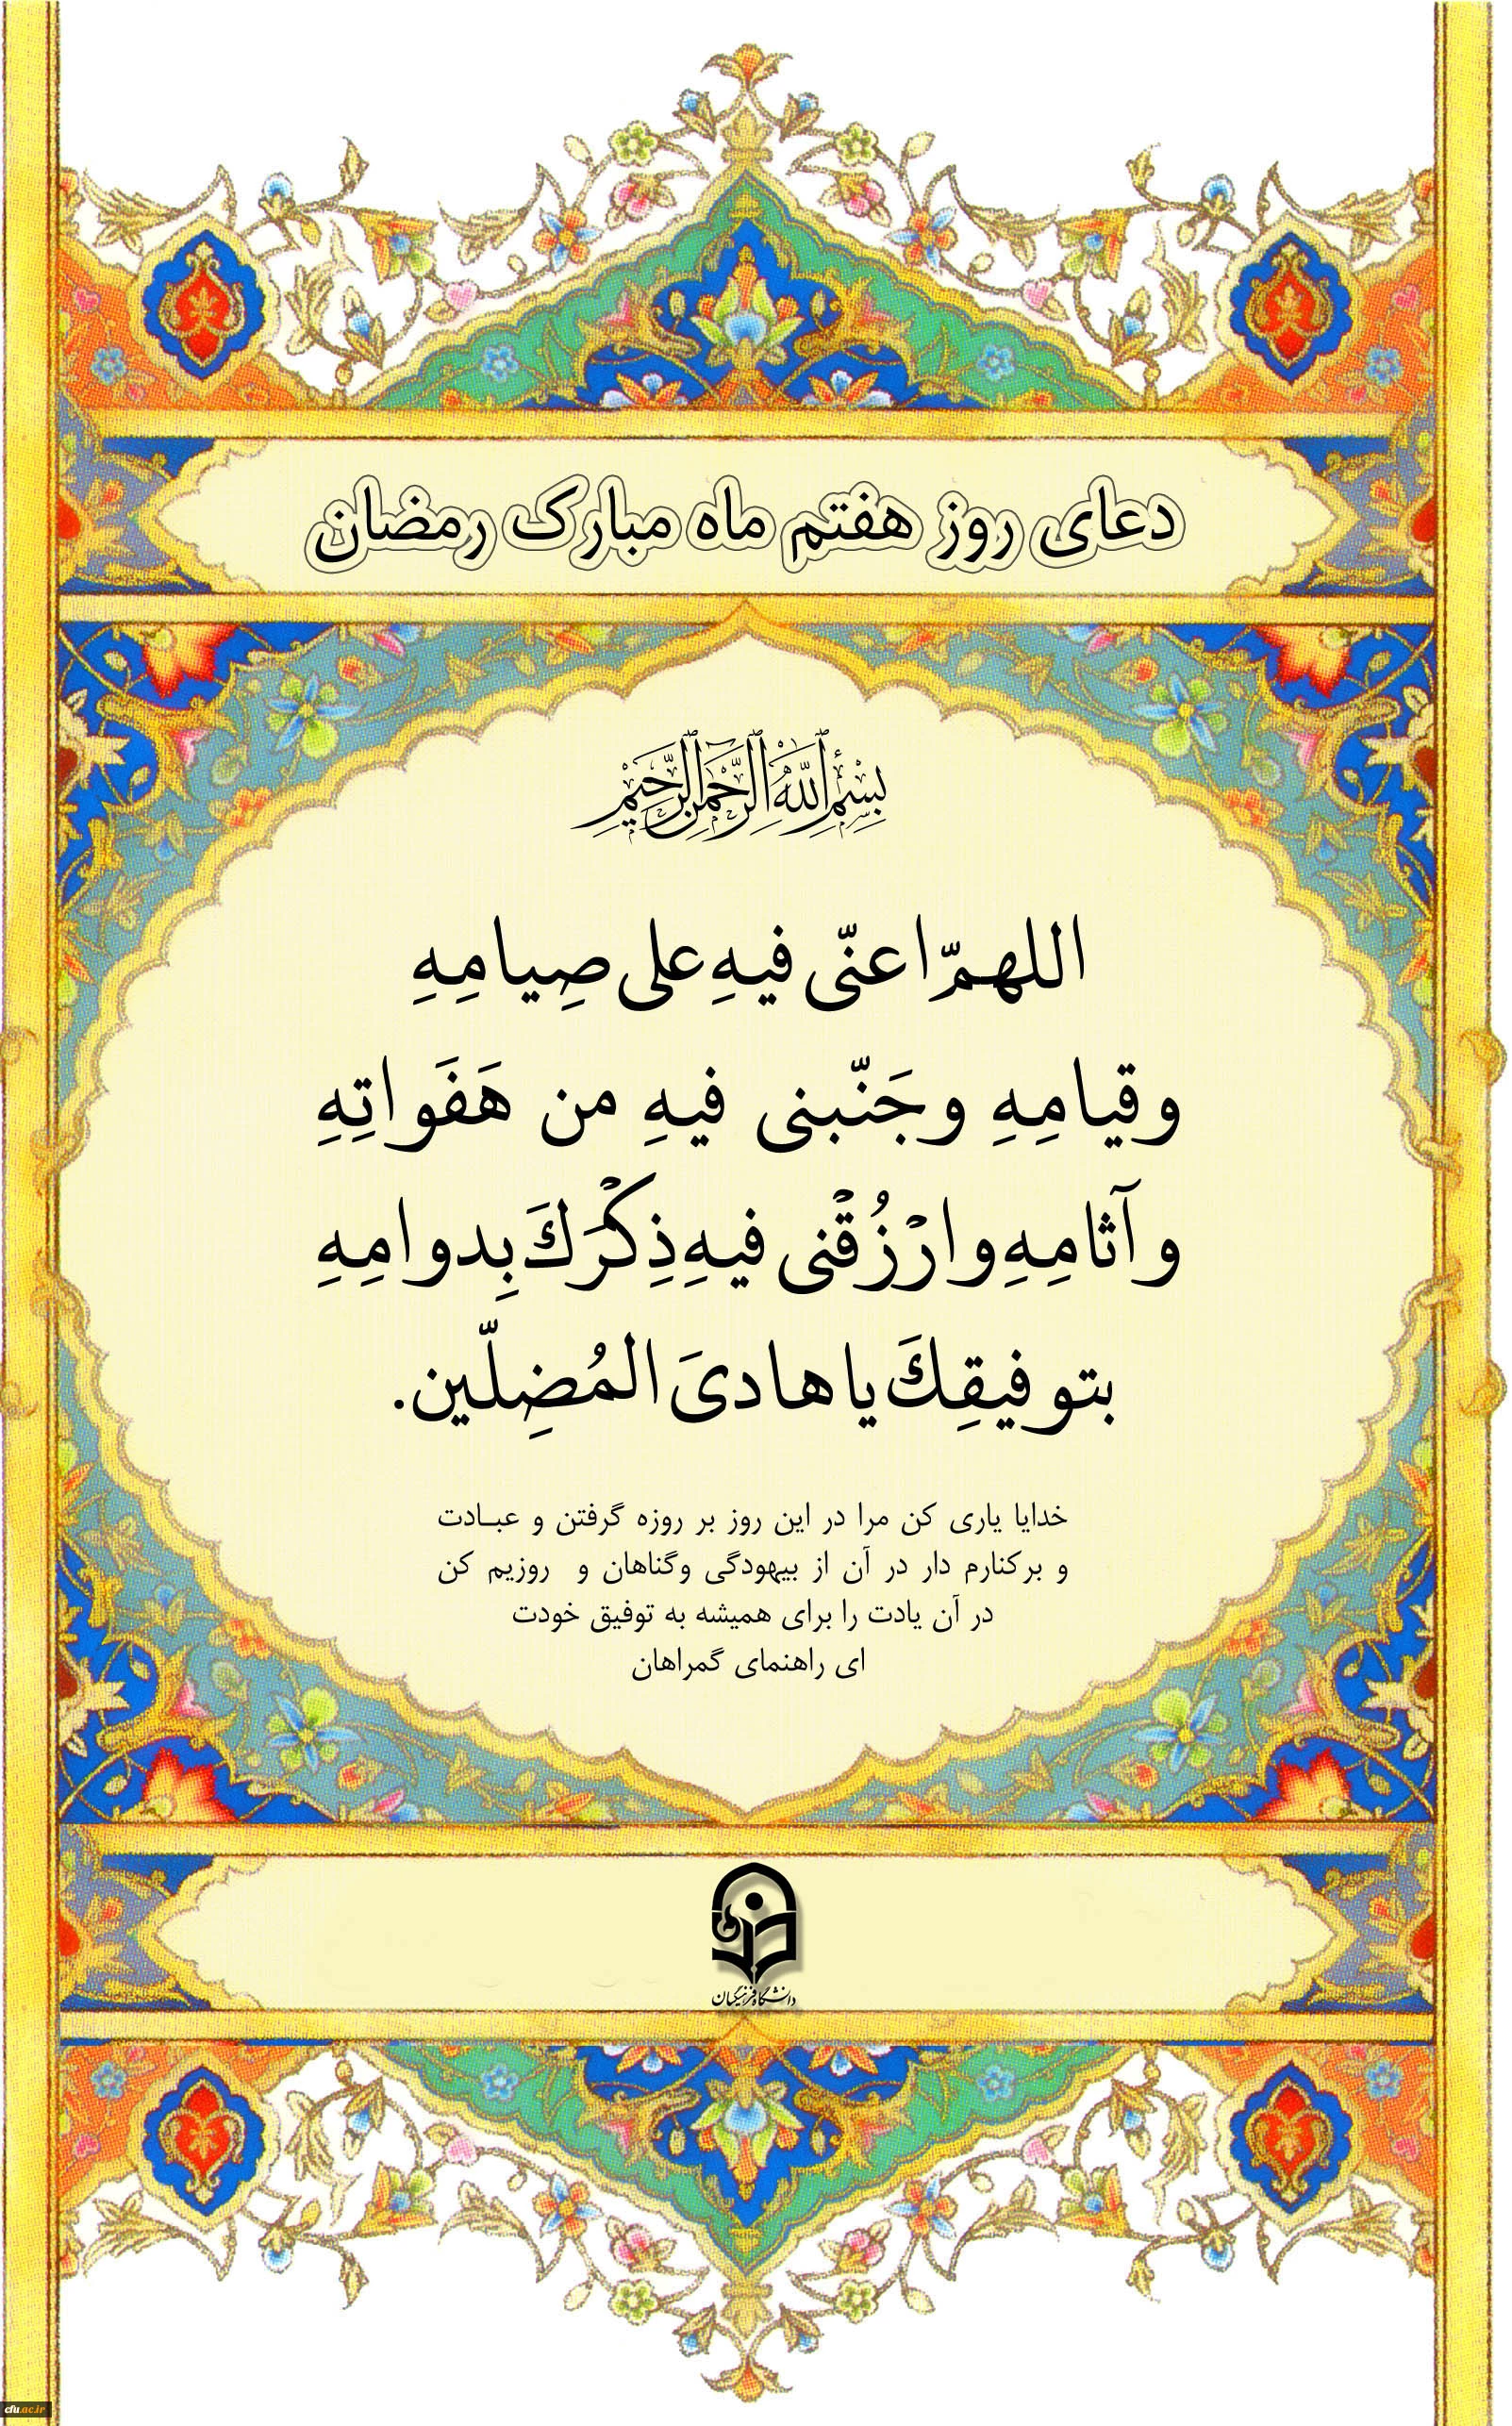 دعای روز هفتم ماه مبارک رمضان
بِسْمِ اللَّهِ الرَّحْمَٰنِ الرَّحِيمِ
اللهمّ اعنّی فیهِ علی صِیامِهِ
وقیامِهِ وجَنّبنی فیهِ من هَفَواتِهِ
وآثامِهِ وارْزُقْنی فیهِ ذِکْرَكَ بِدوامِهِ
بتوفیقِكَ یا هادیَ المُضِلّین.
خدایا یاری کن مرا در این روز بر روزه گرفتن و عبـادت
و برکنارم دار در آن از بیهودگی وگناهان و روزیم کن
در آن یادت را برای همیشه به توفیق خودت
ای راهنمای گمراهان
دانشگاه فرهنگیان
cfu.ac.ir